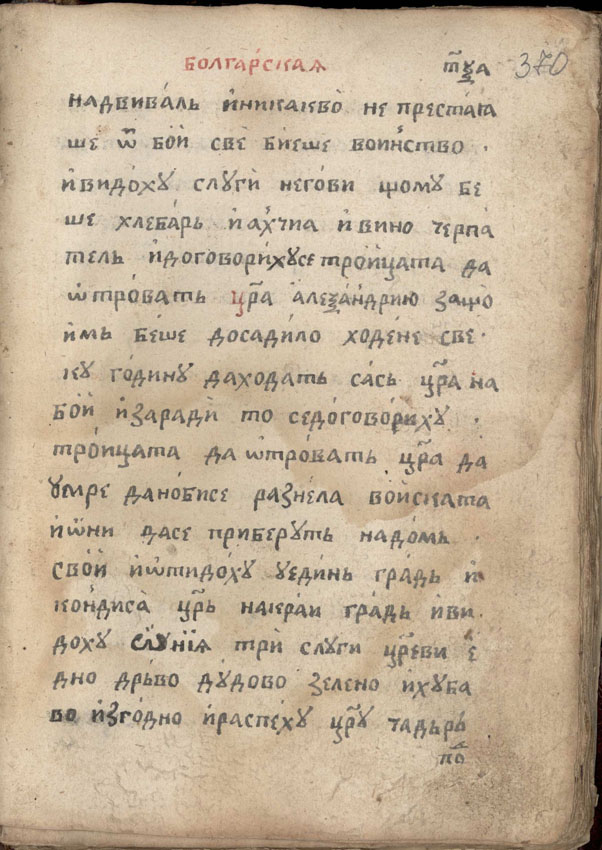 БОЛГА́РСКАѦ т҃ѯа 370
надвива́ль и҆никакво̀ не преста́ꙗ
ше ѿ бо́й свѐ бїеше вои́нство ·
и҆видо́ху слугѝ него́ви що́му бе
ше хлеба́рь и҆ахчиа и҆ вино черпа̀
тель и҆договори́хусе трои́цата да
ѡ҆тро́вать цр҃а а҆леѯа́ндрию защо
и҆мь бе́ше досади́ло ходе́не све ·
ку го́дину да хо́дать са́сь цр҃а на
бо́й и҆ зарадѝ то седо́говориху ·
тро́ицата да ѡ҆тро́вать цр҃а да
умре дано́бисе разне́ла во́йската
и҆ѡ҆ни дасе приберу́ть надо́мь ·
сво́й и҆ѡ҆тидо́ху уеди́нь гра́дь и҆
ко́ндиса̀ цр҃ь накра́и гра́дь и҆ви ·
доху трѝ слуги цр҃еви е҆
дно̀ дрь́во ду́дово зелено и҆хуба
во и҆зго́дно и҆распе́ху цр҃у чадь́рь
по